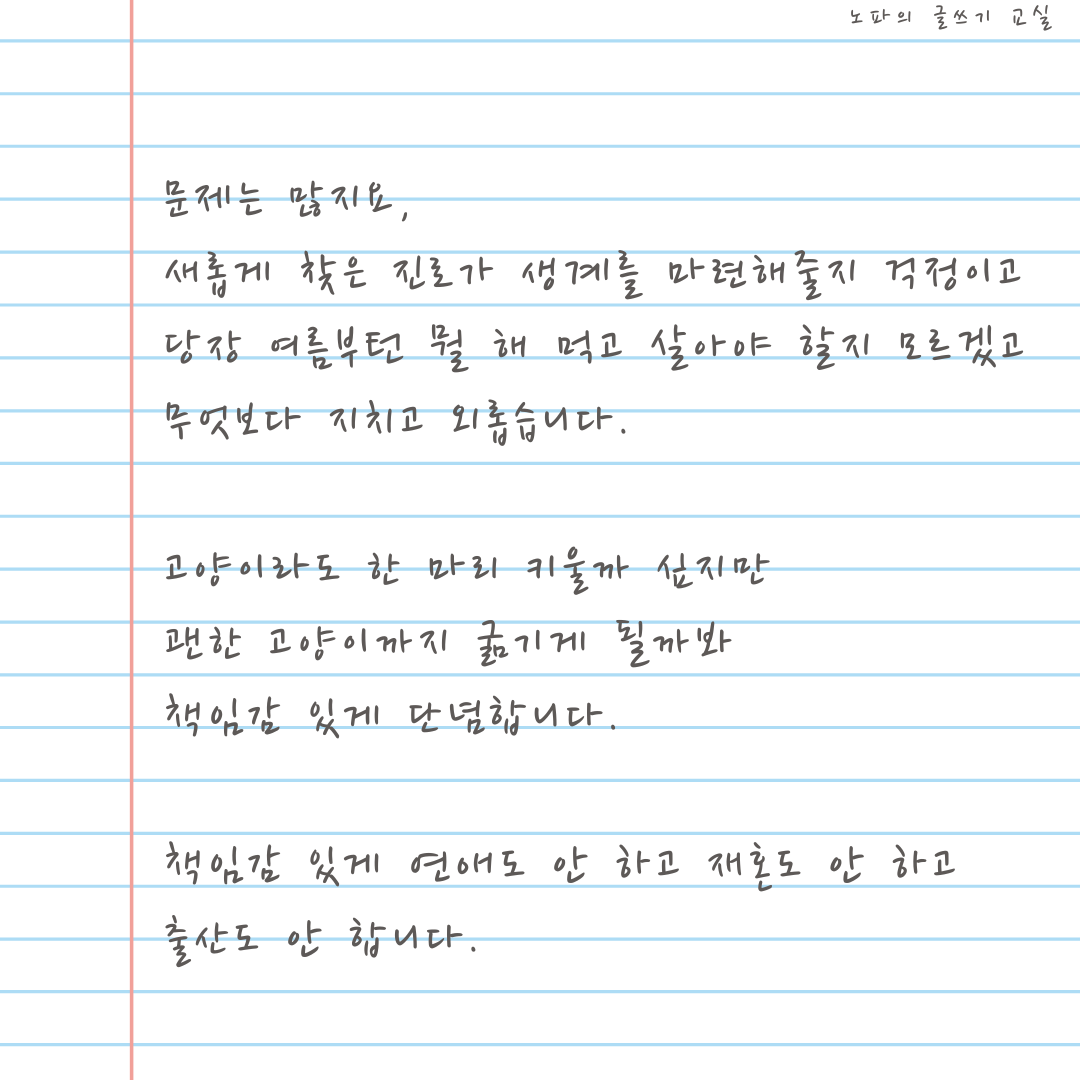 노파의 글쓰기 교실
문제는 많지요,
새롭게 찾은 진로가 생계를 마련해줄지 걱정이고
당장 여름부턴 뭘 해 먹고 살아야 할지 모르겠고
무엇보다 지치고 외롭습니다.
고양이라도 한 마리 키울까 싶지만
괜한 고양이까지 굶기게 될까봐
책임감 있게 단념합니다.
책임감 있게 연애도 안 하고 재혼도 안 하고
출산도 안 합니다.